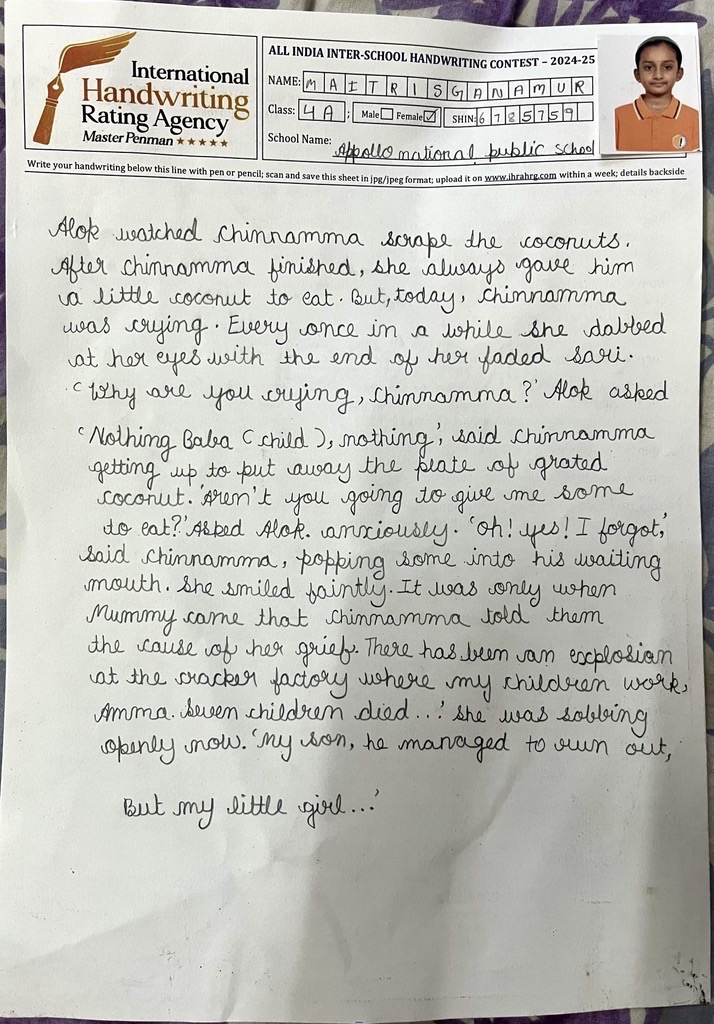 International
Handwriting
Rating Agency
Master Penman ★★★★★
ALL INDIA INTER-SCHOOL HANDWRITING CONTEST – 2024-25
NAME: MAITRI S GANAMUR
Class: 4A ; Male☐ Female☑ SHIN: 6785759
School Name: Appollo national public school
Write your handwriting below this line with pen or pencil; scan and save this sheet in jpg/jpeg format; upload it on www.ihrahrg.com within a week; details backside
Alok watched Chinnamma scrape the coconuts.
After Chinnamma finished, she always gave him
a little coconut to eat. But, today, Chinnamma
was crying. Every once in a while she dabbed
at her eyes with the end of her faded sari.
'Why are you crying, Chinnamma?' Alok asked
'Nothing Baba (child), nothing', said Chinnamma
getting up to put away the plate of grated
coconut. 'Aren't you going to give me some
to eat?' Asked Alok. anxciously. 'Oh! yes! I forgot,'
said Chinnamma, popping some into his waiting
mouth. She smiled faintly. It was only when
Mummy came that Chinnamma told them
the cause of her grief. There has been an explosian
at the cracker factory where my children work,
Amma. Seven children died...' She was sobbing
openly now. 'My son, he managed to run out,
But my little girl...'